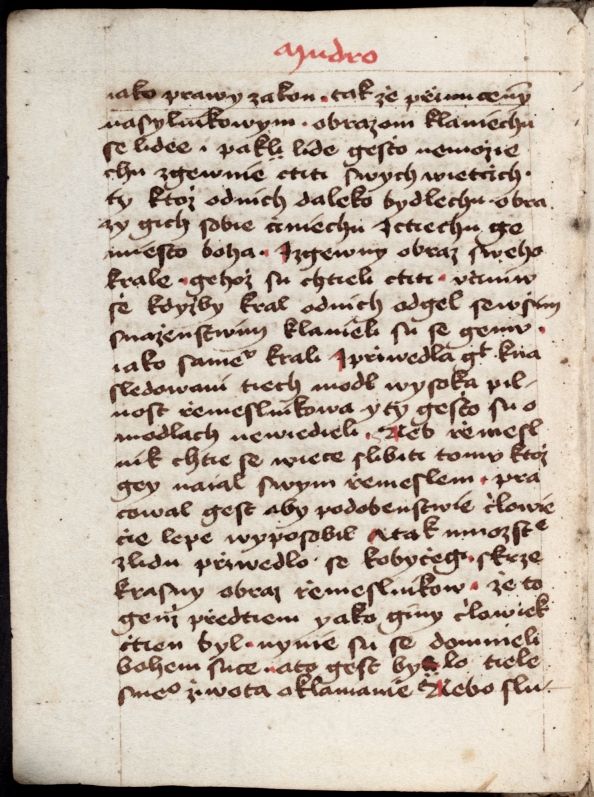 Mudro
iako prawy zakon · takze přinucenỹ
nasylnikowym · obrazom klaniechu
se lidee i pakli lide gesto nemozie
chu zgewnie ctiti swych wietčich ·
ty ktoz odnich daleko bydlechu · obra
zy gich sobie činiechu Jctiechu ge
miesto boha · Jzgewny obraz sweho
krale · gehoz su chtieli ctiti · včiniw
še kdyžby kral odnich odgel sewsim
snazenstwim klanieli su se gemu ·
iako same° krali Jpriwedla gt kna
sledowani tiech modl wysoka pil-
nost řemeslnikowa yty gesto su o
modlach newiedieli · Neb řemesl
nik chtie se wiece slibiti tomu ktoz
gey naial swym řemeslem · pra
cowal gest aby podobenstwie člowie
čie lepe wyposobil · Atak mnozstᵉ
zlidu přiwedlo se kobyčegi · skrze
krasny obraz řemeslnikow · že to
genž předtiem yako giny člowiek
ctien byl · nynie su se domnieli
bohem suce · ato gest bylo tiele
sne° žiwota oklamanie Nebo slu-